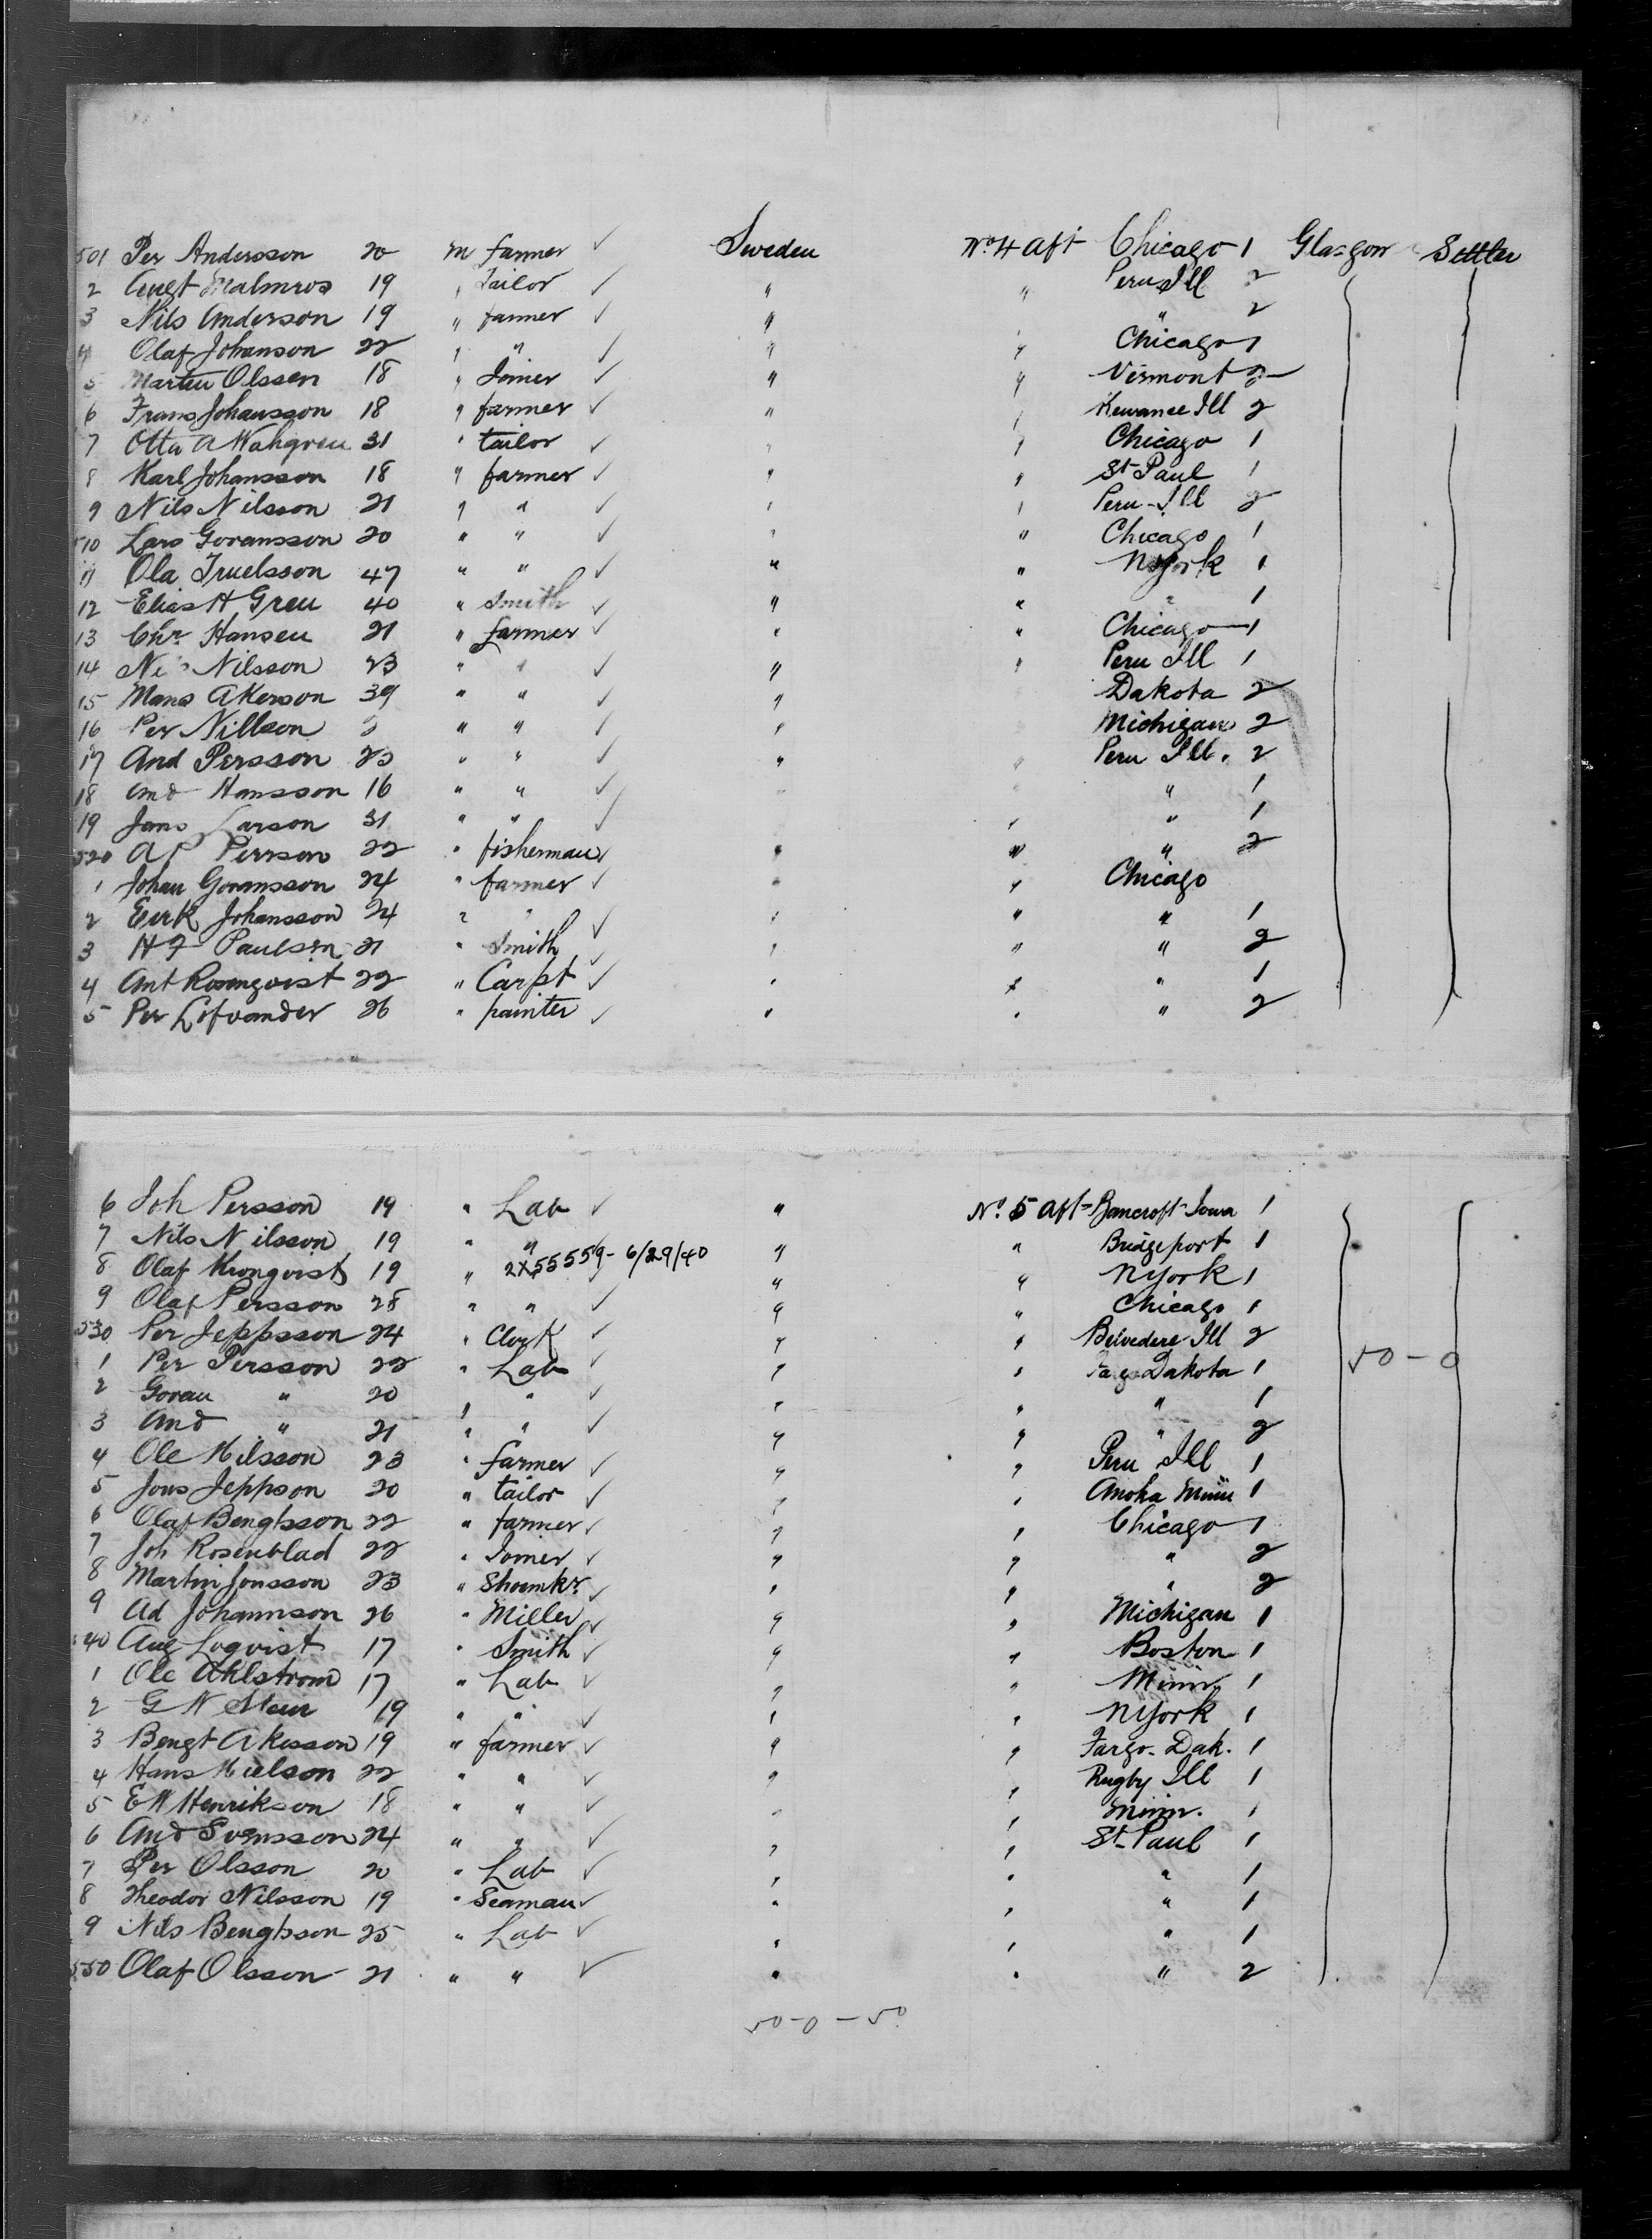 501 Per Andersson 20 m farmer ✓ Sweden No 4 aft Chicago 1 Glasgow Settler
2 Augt Malmros 19 " Tailor ✓ " " Peru Ill 2
3 Nils Anderson 19 " farmer ✓ " " " 2
4 Olaf Johanson 22 " " ✓ " " Chicago 1
5 Marten Olssen 18 " Joiner ✓ " " Vermont 2
6 Frans Johansson 18 " farmer ✓ " " Kewanee Ill 2
7 Otto A Wahgren 31 " tailor ✓ " " Chicago 1
8 Karl Johansson 18 " farmer ✓ " " St Paul 1
9 Nils Nilsson 21 " " ✓ " " Peru-Ill 2
510 Lars Goransson 20 " " ✓ " " Chicago 1
11 Ola Truelsson 47 " " ✓ " " NYork 1
12 Elias H Gren 40 " Smith ✓ " " " 1
13 Chr Hansen 21 " farmer ✓ " " Chicago 1
14 Nilsson 23 " " ✓ " " Peru Ill 1
15 Mans Akerson 39 " " ✓ " Dakota 2
16 Per Nillson " " ✓ " Michigan 2
17 And Persson 23 " " ✓ " " Peru Ill. 2
18 And Hansson 16 " " ✓ " " " 1
19 Jans Larson 31 " " ✓ " " 1
520 A P Perrson 22 " fisherman ✓ " " " 2
1 Johan Goransson 24 " farmer ✓ " " Chicago
2 Eirk Johansson 24 " " ✓ " " " 1
3 H F Paulson 21 " Smith ✓ " " " 2
4 Ant Rosenqvist 22 " Carpt ✓ " " " 1
5 Per Lofvander 26 " painter ✓ " " " 2
6 Joh Persson 19 " Lab ✓ " No 5 aft Bancroft-Iowa 1
7 Nils Nilsson 19 " " " " Bridgeport 1
8 Olaf Kronqvist 19 " 2X55559- 6/29/40 " " NYork 1
9 Olaf Persson 28 " " ✓ " " Chicago 1
530 Per Jeppsson 24 " Clerk ✓ " " Belvedere Ill 2
1 Per Persson 22 " Lab ✓ " " Dakota 1 50-0
2 Goran " 20 " " ✓ " " " 1
3 And " 21 " " ✓ " " " 2
4 Ole Nilsson 23 " farmer ✓ " " Peru Ill 1
5 Jons Jeppson 20 " tailor ✓ " " Anoka Minn 1
6 Olaf Bengtsson 22 " farmer ✓ " " Chicago 1
7 Joh Rosenblad 22 " Joiner ✓ " " " 2
8 Martin Jonsson 23 " Shoemkr ✓ " " " 2
9 Ad Johannson 26 " Miller ✓ " " Michigan 1
540 Aug Loqvist 17 " Smith ✓ " " Boston 1
1 Ole Ahlstrom 17 " Lab ✓ " " Minn 1
2 G N 19 " " ✓ " " NYork 1
3 Bengt Akesson 19 " farmer ✓ " " Fargo-Dak. 1
4 Hans Nielson 22 " " ✓ " " Rugby Ill 1
5 E W Henrikson 18 " " ✓ " " Minn. 1
6 And Svensson 24 " " ✓ " " St Paul 1
7 Per Olsson 20 " Lab ✓ " " " 1
8 Theodor Nilsson 19 " Seaman ✓ " " " 1
9 Nils Bengtsson 25 " Lab ✓ " " " 1
550 Olaf Olsson 21 " " ✓ " " " 2
50-0-50